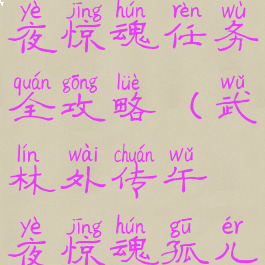 yè jīng hún rèn wù
夜惊魂任务
quán gōng lüè wǔ
全攻略（武
lín wài chuán wǔ
林外传午
yè jīng hún gū ér
夜惊魂孤儿